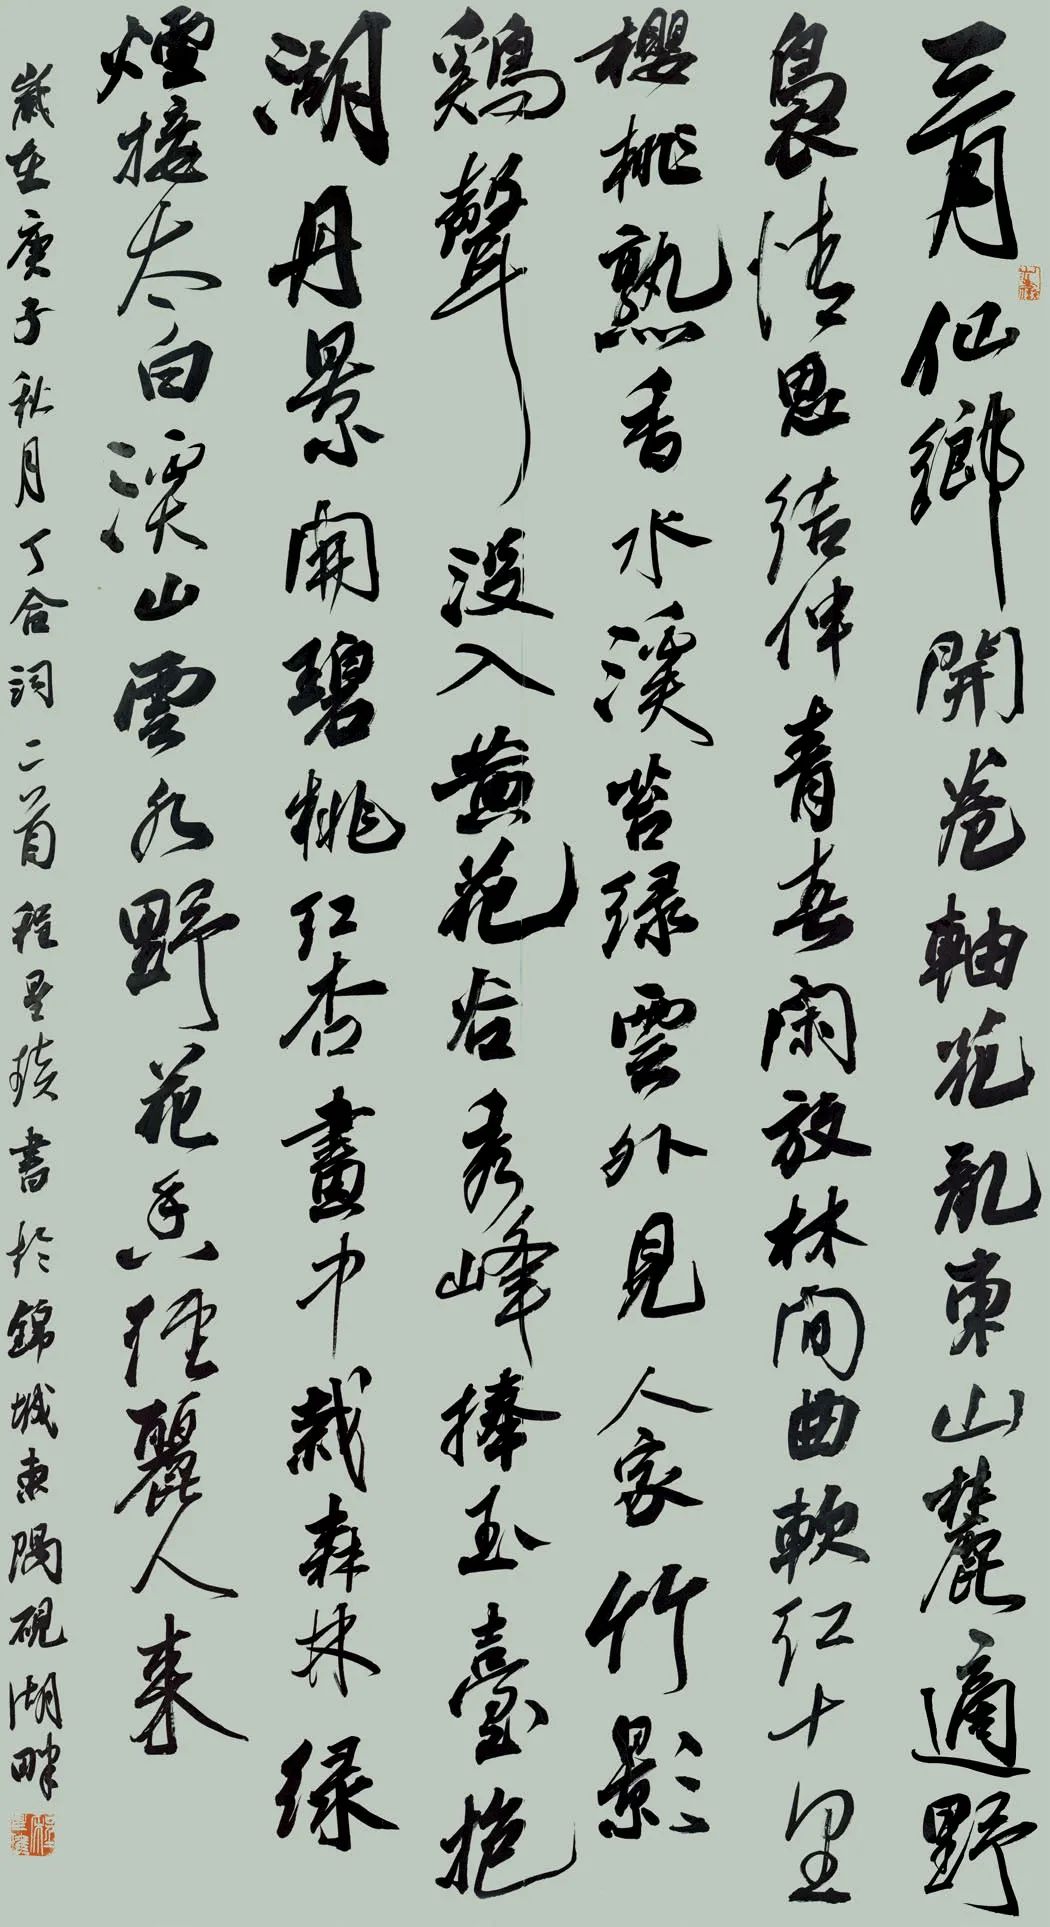 三月仙鄉開卷軸花亂東山麓適野
裊情思結伴青春閑放林間曲軟紅十里
櫻桃熟香水溪苔绿雲外見人家竹影
鷄聲没入黄花谷秀峰捧玉臺抱
湖丹景開碧桃红杏畫中栽森林绿
煙接太白溪山雲水野花香徑麗人来
歲在庚子秋月丁合词二首程星琰書於錦城東隅硯湖畔